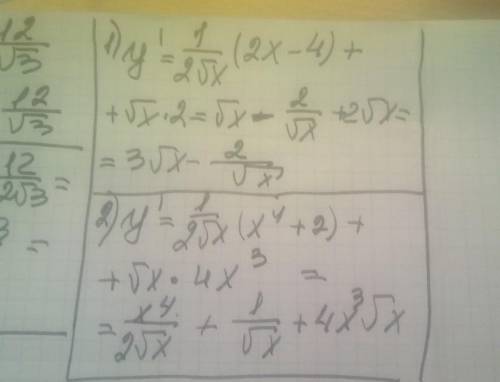 12/√3
12/√3
12/2√3 =
3 =
1) y' = 1/2√x (2x - 4) +
+ √x · 2 = √x - 2/√x + 2√x =
= 3√x - 2/√x
2) y' = 1/2√x (x⁴ + 2) +
+ √x · 4x³ =
= x⁴/2√x + 1/√x + 4x³√x